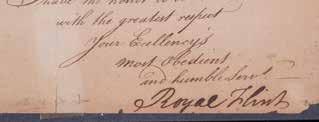 have the honor to
with the greatest respect
Your Excellency's
most Obedient
and humble Servt
Royal Flint